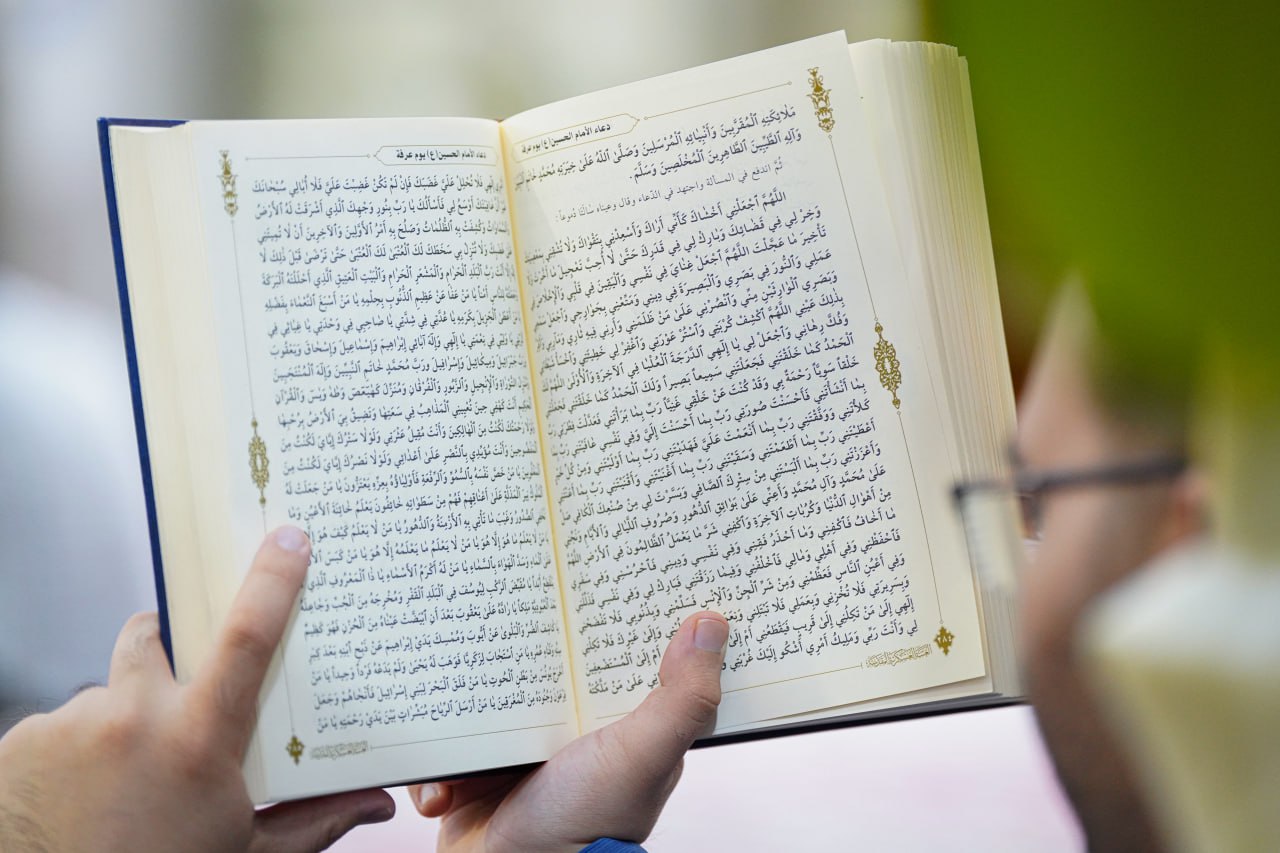 دعاء الأمام الحسين(ع) يوم عرفة
مَلَائِكَتِهِ ٱلْمُقَرَّبِينَ وَأَنْبِيَائِهِ ٱلْمُرْسَلِينَ وَصَلَّى ٱللّٰهُ عَلَىٰ خِيَرَتِهِ مُحَمَّدٍ خَاتَمِ
وَآلِهِ ٱلطَّيِّبِينَ ٱلطَّاهِرِينَ ٱلْمُخْلَصِينَ وَسَلَّمَ.
ثُمَّ اندفع في المسألة واجتهد في الدّعاء وقال وعيناه سَالتَا دُموعاً:
اَللّٰهُمَّ ٱجْعَلْنِي أَخْشَاكَ كَأَنِّي أَرَاكَ وَأَسْعِدْنِي بِتَقْوَاكَ وَلَا تُشْقِنِي
وَخِرْ لِي فِي قَضَائِكَ وَبَارِكْ لِي فِي قَدَرِكَ حَتَّىٰ لَا أُحِبَّ تَعْجِيلَ مَا
تَأْخِيرَ مَا عَجَّلْتَ اَللّٰهُمَّ ٱجْعَلْ غِنَايَ فِي نَفْسِي وَٱلْيَقِينَ فِي قَلْبِي
عَمَلِي وَٱلنُّورَ فِي بَصَرِي وَٱلْبَصِيرَةَ فِي دِينِي وَمَتِّعْنِي بِجَوَارِحِي وَٱجْعَلْ
وَبَصَرِي ٱلْوَارِثَيْنِ مِنِّي وَٱنْصُرْنِي عَلَىٰ مَنْ ظَلَمَنِي وَأَرِنِي فِيهِ
بِذٰلِكَ عَيْنِي اَللّٰهُمَّ ٱكْشِفْ كُرْبَتِي وَٱسْتُرْ عَوْرَتِي وَٱغْفِرْ لِي خَطِيئَتِي
وَفُكَّ رِهَانِي وَٱجْعَلْ لِي يَا إِلٰهِي ٱلدَّرَجَةَ ٱلْعُلْيَا فِي ٱلْآخِرَةِ وَٱلْأُولَىٰ
ٱلْحَمْدُ كَمَا خَلَقْتَنِي فَجَعَلْتَنِي سَمِيعاً بَصِيراً وَلَكَ ٱلْحَمْدُ كَمَا خَلَقْتَنِي
خَلْقاً سَوِيّاً رَحْمَةً بِي وَقَدْ كُنْتَ عَنْ خَلْقِي غَنِيّاً رَبِّ بِمَا بَرَأْتَنِي
بِمَا أَنْشَأْتَنِي فَأَحْسَنْتَ صُورَتِي رَبِّ بِمَا أَحْسَنْتَ إِلَيَّ وَفِي نَفْسِي عَافَيْتَنِي
كَلَأْتَنِي وَوَفَّقْتَنِي رَبِّ بِمَا أَنْعَمْتَ عَلَيَّ فَهَدَيْتَنِي رَبِّ بِمَا أَوْلَيْتَنِي
أَعْطَيْتَنِي رَبِّ بِمَا أَطْعَمْتَنِي وَسَقَيْتَنِي رَبِّ بِمَا أَغْنَيْتَنِي وَأَقْنَيْتَنِي
وَأَعْزَزْتَنِي رَبِّ بِمَا أَلْبَسْتَنِي مِنْ سِتْرِكَ ٱلصَّافِي وَيَسَّرْتَ لِي مِنْ صُنْعِكَ ٱلْكَافِي
عَلَىٰ مُحَمَّدٍ وَآلِ مُحَمَّدٍ وَأَعِنِّي عَلَىٰ بَوَائِقِ ٱلدُّهُورِ وَصُرُوفِ ٱللَّيَالِي وَٱلْأَيَّامِ
مِنْ أَهْوَالِ ٱلدُّنْيَا وَكُرُبَاتِ ٱلْآخِرَةِ وَٱكْفِنِي شَرَّ مَا يَعْمَلُ ٱلظَّالِمُونَ فِي ٱلْأَرْضِ
مَا أَخَافُ فَٱكْفِنِي وَمَا أَحْذَرُ فَقِنِي وَفِي نَفْسِي وَدِينِي فَٱحْرُسْنِي وَفِي سَفَرِي
فَٱحْفَظْنِي وَفِي أَهْلِي وَمَالِي فَٱخْلُفْنِي وَفِيمَا رَزَقْتَنِي فَبَارِكْ لِي وَفِي نَفْسِي
وَفِي أَعْيُنِ ٱلنَّاسِ فَعَظِّمْنِي وَمِنْ شَرِّ ٱلْجِنِّ وَٱلْإِنْسِ فَسَلِّمْنِي وَبِذُنُوبِي فَلَا تَفْضَحْنِي
وَبِسَرِيرَتِي فَلَا تُخْزِنِي وَبِعَمَلِي فَلَا تَبْتَلِنِي
إِلٰهِي إِلَىٰ مَنْ تَكِلُنِي إِلَىٰ قَرِيبٍ فَيَقْطَعُنِي أَمْ
لِي وَأَنْتَ رَبِّي وَمَلِيكُ أَمْرِي أَشْكُو إِلَيْكَ غُرْبَتِي
دعاء الأمام الحسين(ع) يوم عرفة
إِلٰهِي فَلَا تُحْلِلْ عَلَيَّ غَضَبَكَ فَإِنْ لَمْ تَكُنْ غَضِبْتَ عَلَيَّ فَلَا أُبَالِي سُبْحَانَكَ
أَوْسَعُ لِي فَأَسْأَلُكَ يَا رَبِّ بِنُورِ وَجْهِكَ ٱلَّذِي أَشْرَقَتْ لَهُ ٱلْأَرْضُ
وَكُشِفَتْ بِهِ ٱلظُّلُمَاتُ وَصَلَحَ بِهِ أَمْرُ ٱلْأَوَّلِينَ وَٱلْآخِرِينَ أَنْ لَا تُمِيتَنِي
وَلَا تُنْزِلَ بِي سَخَطَكَ لَكَ ٱلْعُتْبَىٰ لَكَ ٱلْعُتْبَىٰ حَتَّىٰ تَرْضَىٰ قَبْلَ ذٰلِكَ لَا
أَنْتَ رَبَّ ٱلْبَلَدِ ٱلْحَرَامِ وَٱلْمَشْعَرِ ٱلْحَرَامِ وَٱلْبَيْتِ ٱلْعَتِيقِ ٱلَّذِي أَحْلَلْتَهُ ٱلْبَرَكَةَ
أَمْناً يَا مَنْ عَفَا عَنْ عَظِيمِ ٱلذُّنُوبِ بِحِلْمِهِ يَا مَنْ أَسْبَغَ ٱلنَّعْمَاءَ بِفَضْلِهِ
ٱلْجَزِيلَ بِكَرَمِهِ يَا عُدَّتِي فِي شِدَّتِي يَا صَاحِبِي فِي وَحْدَتِي يَا غِيَاثِي فِي
فِي نِعْمَتِي يَا إِلٰهِي وَإِلٰهَ آبَائِي إِبْرَاهِيمَ وَإِسْمَاعِيلَ وَإِسْحَاقَ وَيَعْقُوبَ
وَمِيكَائِيلَ وَإِسْرَافِيلَ وَرَبَّ مُحَمَّدٍ خَاتَمِ ٱلنَّبِيِّينَ وَآلِهِ ٱلْمُنْتَجَبِينَ
وَٱلْإِنْجِيلِ وَٱلزَّبُورِ وَٱلْفُرْقَانِ وَمُنَزِّلَ كهيعص وَطٰهٰ وَيٰسٓ وَٱلْقُرْآنِ
أَنْتَ كَهْفِي حِينَ تُعْيِينِي ٱلْمَذَاهِبُ فِي سَعَتِهَا وَتَضِيقُ بِيَ ٱلْأَرْضُ بِرُحْبِهَا
رَحْمَتُكَ لَكُنْتُ مِنَ ٱلْهَالِكِينَ وَأَنْتَ مُقِيلُ عَثْرَتِي وَلَوْلَا سَتْرُكَ إِيَّايَ لَكُنْتُ مِنَ
وَأَنْتَ مُؤَيِّدِي بِٱلنَّصْرِ عَلَىٰ أَعْدَائِي وَلَوْلَا نَصْرُكَ إِيَّايَ لَكُنْتُ مِنَ
يَا مَنْ خَصَّ نَفْسَهُ بِٱلسُّمُوِّ وَٱلرِّفْعَةِ فَأَوْلِيَاؤُهُ بِعِزِّهِ يَعْتَزُّونَ يَا مَنْ جَعَلَتْ لَهُ
ٱلْمَذَلَّةِ عَلَىٰ أَعْنَاقِهِمْ فَهُمْ مِنْ سَطَوَاتِهِ خَائِفُونَ يَعْلَمُ خَائِنَةَ ٱلْأَعْيُنِ وَمَا
ٱلصُّدُورُ وَغَيْبَ مَا تَأْتِي بِهِ ٱلْأَزْمِنَةُ وَٱلدُّهُورُ يَا مَنْ لَا يَعْلَمُ كَيْفَ هُوَ إِلَّا هُوَ
لَا يَعْلَمُ مَا هُوَ إِلَّا هُوَ يَا مَنْ لَا يَعْلَمُ مَا يَعْلَمُهُ إِلَّا هُوَ يَا مَنْ كَبَسَ
وَسَدَّ ٱلْهَوَاءَ بِٱلسَّمَاءِ يَا مَنْ لَهُ أَكْرَمُ ٱلْأَسْمَاءِ يَا ذَا ٱلْمَعْرُوفِ ٱلَّذِي
يَا مُقَيِّضَ ٱلرَّكْبِ لِيُوسُفَ فِي ٱلْبَلَدِ ٱلْقَفْرِ وَمُخْرِجَهُ مِنَ ٱلْجُبِّ وَجَاعِلَهُ
مَلِكاً يَا رَادَّهُ عَلَىٰ يَعْقُوبَ بَعْدَ أَنِ ٱبْيَضَّتْ عَيْنَاهُ مِنَ ٱلْحُزْنِ فَهُوَ كَظِيمٌ
ٱلضُّرِّ وَٱلْبَلْوَىٰ عَنْ أَيُّوبَ وَمُمْسِكَ يَدَيْ إِبْرَاهِيمَ عَنْ ذَبْحِ ٱبْنِهِ بَعْدَ كِبَرِ
يَا مَنِ ٱسْتَجَابَ لِزَكَرِيَّا فَوَهَبَ لَهُ يَحْيَىٰ وَلَمْ يَدَعْهُ فَرْداً وَحِيداً يَا مَنْ
يُونُسَ مِنْ بَطْنِ ٱلْحُوتِ يَا مَنْ فَلَقَ ٱلْبَحْرَ لِبَنِي إِسْرَائِيلَ فَأَنْجَاهُمْ وَجَعَلَ
وَجُنُودَهُ مِنَ ٱلْمُغْرَقِينَ يَا مَنْ أَرْسَلَ ٱلرِّيَاحَ مُبَشِّرَاتٍ بَيْنَ يَدَيْ رَحْمَتِهِ يَا مَنْ